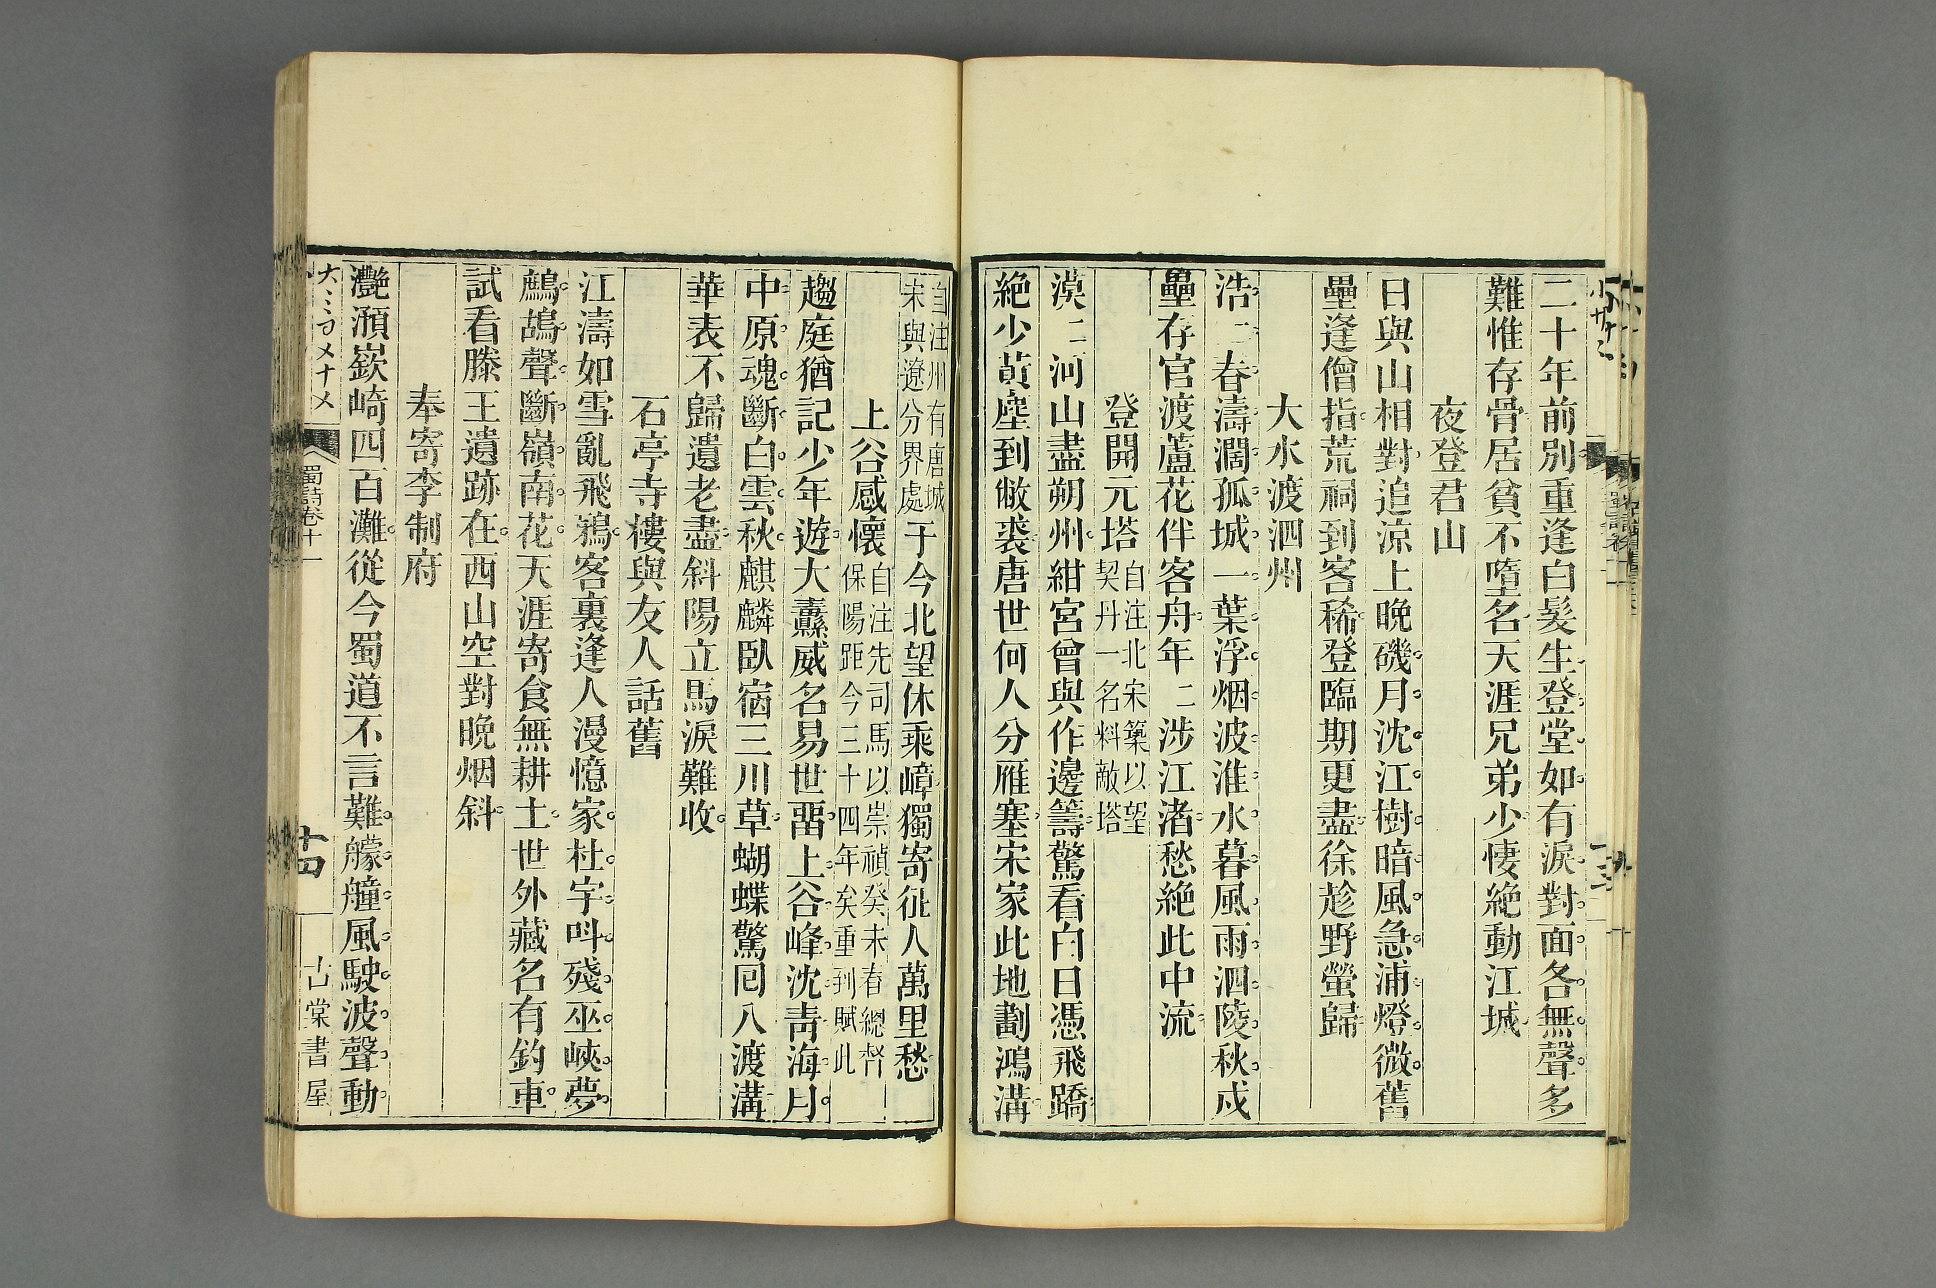 二十年前別重逢白髮生登堂如有淚對面各無聲多
難惟存骨居貧不墮名天涯兄弟少悽絶動江城
夜登君山
日與山相對追涼上晚磯月沈江樹暗風急浦燈微舊
壘逢僧指荒祠到客稀登臨期更盡徐趁野螢歸
大水渡泗州
浩二春濤濶孤城一葉浮烟波淮水暮風雨泗陵秋戍
壘存官渡蘆花伴客舟年二涉江渚愁絶此中流
登開元塔
自注北宋築以望
契丹一名料敵塔
漠二河山盡朔州紺宮曾與作邊籌驚看白日憑飛蹻
絶少黃塵到敝裘唐世何人分雁塞宋家此地劃鴻溝
自注州有唐城
宋與遼分界處
于今北望休乘嶂獨寄征人萬里愁
上谷感懷
自注先司馬以崇禎癸未春總督
保陽距今三十四年矣重到賦此
趨庭猶記少年遊大纛威名易世畱上谷峰沈靑海月
中原魂斷白雲秋麒麟臥宿三川草蝴蝶驚囘八渡溝
華表不歸遺老盡斜陽立馬淚難收
石亭寺樓與友人話舊
江濤如雪亂飛鴉客裏逢人漫憶家杜宇呌殘巫峽夢
鷓鴣聲斷嶺南花天涯寄食無耕土世外藏名有釣車
試看滕王遺跡在西山空對晚烟斜
奉寄李制府
灧澦嶔崎四百灘從今蜀道不言難艨艟風駛波聲動
蜀詩卷十一
十四
古棠書屋